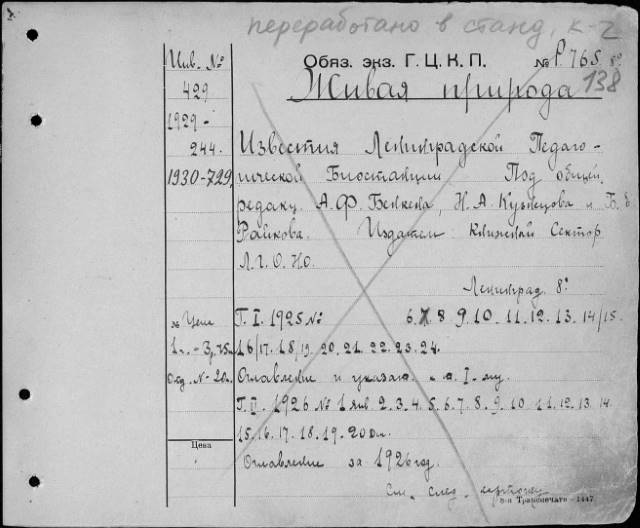 переработано в станд. к-2
Инв. №
429
1929-
244.
1930-729,
Обяз. экз. Г. Ц. К. П. № Р. 765 8°
138
Живая природа
Известия Ленинградской Педаго-
гической Биостанции Под общей
редакц. А. Ф. Бенкена, Н. А. Кузнецова и Б. Е
Райкова. Издатели Книжный Сектор
Л. Г. О. Н. О.
Ленинград. 8°
№ Цена
1 к. - 3 р. 75 к.
Отд. № - 20 к.
Г. I. 1925 № 6. 7. 8 9. 10. 11. 12. 13. 14/15.
16/17. 18/19. 20. 21. 22. 23. 24.
Оглавление и указат. к I. му.
Г. II. 1926 № 1 янв 2. 3. 4. 5. 6. 7. 8. 9. 10 11. 12. 13. 14.
15. 16. 17. 18. 19. 20
Цена
Оглавление за 1926 год.
См. след. карточку
3-я Транспечать - 1447